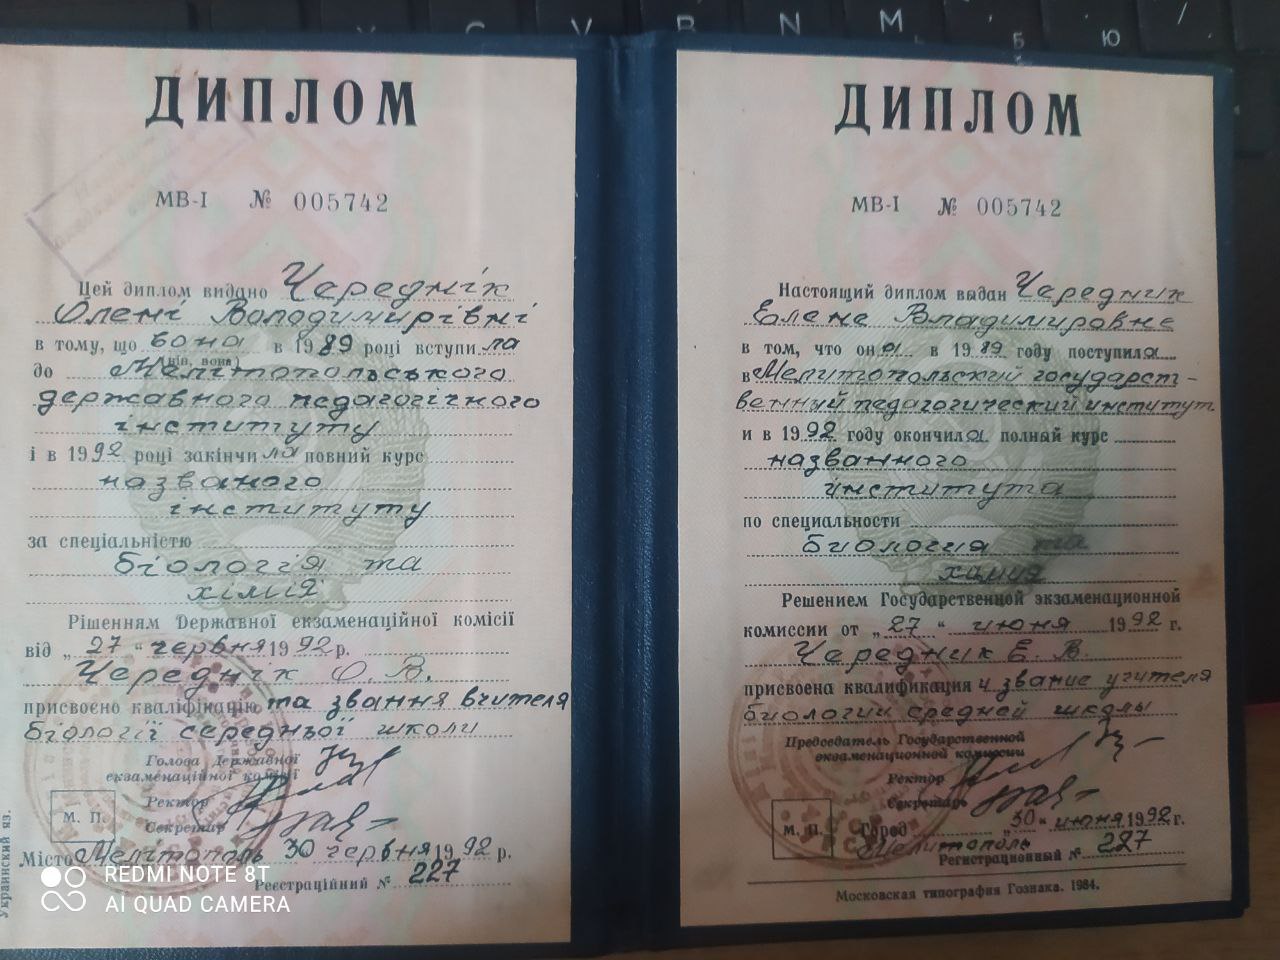 ДИПЛОМ
МВ-I № 005742
Цей диплом видано Череднік
Олені Володимирівні
в тому, що вона в 1989 році вступила
(він, вона)
до Мелітопольського
державного педагогічного
інституту
і в 1992 році закінчила повний курс
названого
інституту
за спеціальністю
біологія та
хімія
Рішенням Державної екзаменаційної комісії
від „27“ червня 1992 р.
Череднік О. В.
присвоєно кваліфікацію та звання вчителя
біології середньої школи
Голова Державної
екзаменаційної комісії
Ректор
М. П.
Секретар
Місто Мелітополь 30 червня 1992 р.
Реєстраційний № 227
Украинский яз.
ДИПЛОМ
МВ-I № 005742
Настоящий диплом выдан Чередник
Елене Владимировне
в том, что она в 1989 году поступила
в Мелитопольский государст-
венный педагогический институт
и в 1992 году окончила полный курс
названного
института
по специальности
биология та
химия
Решением Государственной экзаменационной
комиссии от „27“ июня 1992 г.
Чередник Е. В.
присвоена квалификация и звание учителя
биологии средней школы
Председатель Государственной
экзаменационной комиссии
Ректор
Секретарь
М. П.
Город „30“ июня 1992 г.
Мелитополь
Регистрационный № 227
Московская типография Гознака. 1984.
V B N M
Б Ю
REDMI NOTE 8T
AI QUAD CAMERA